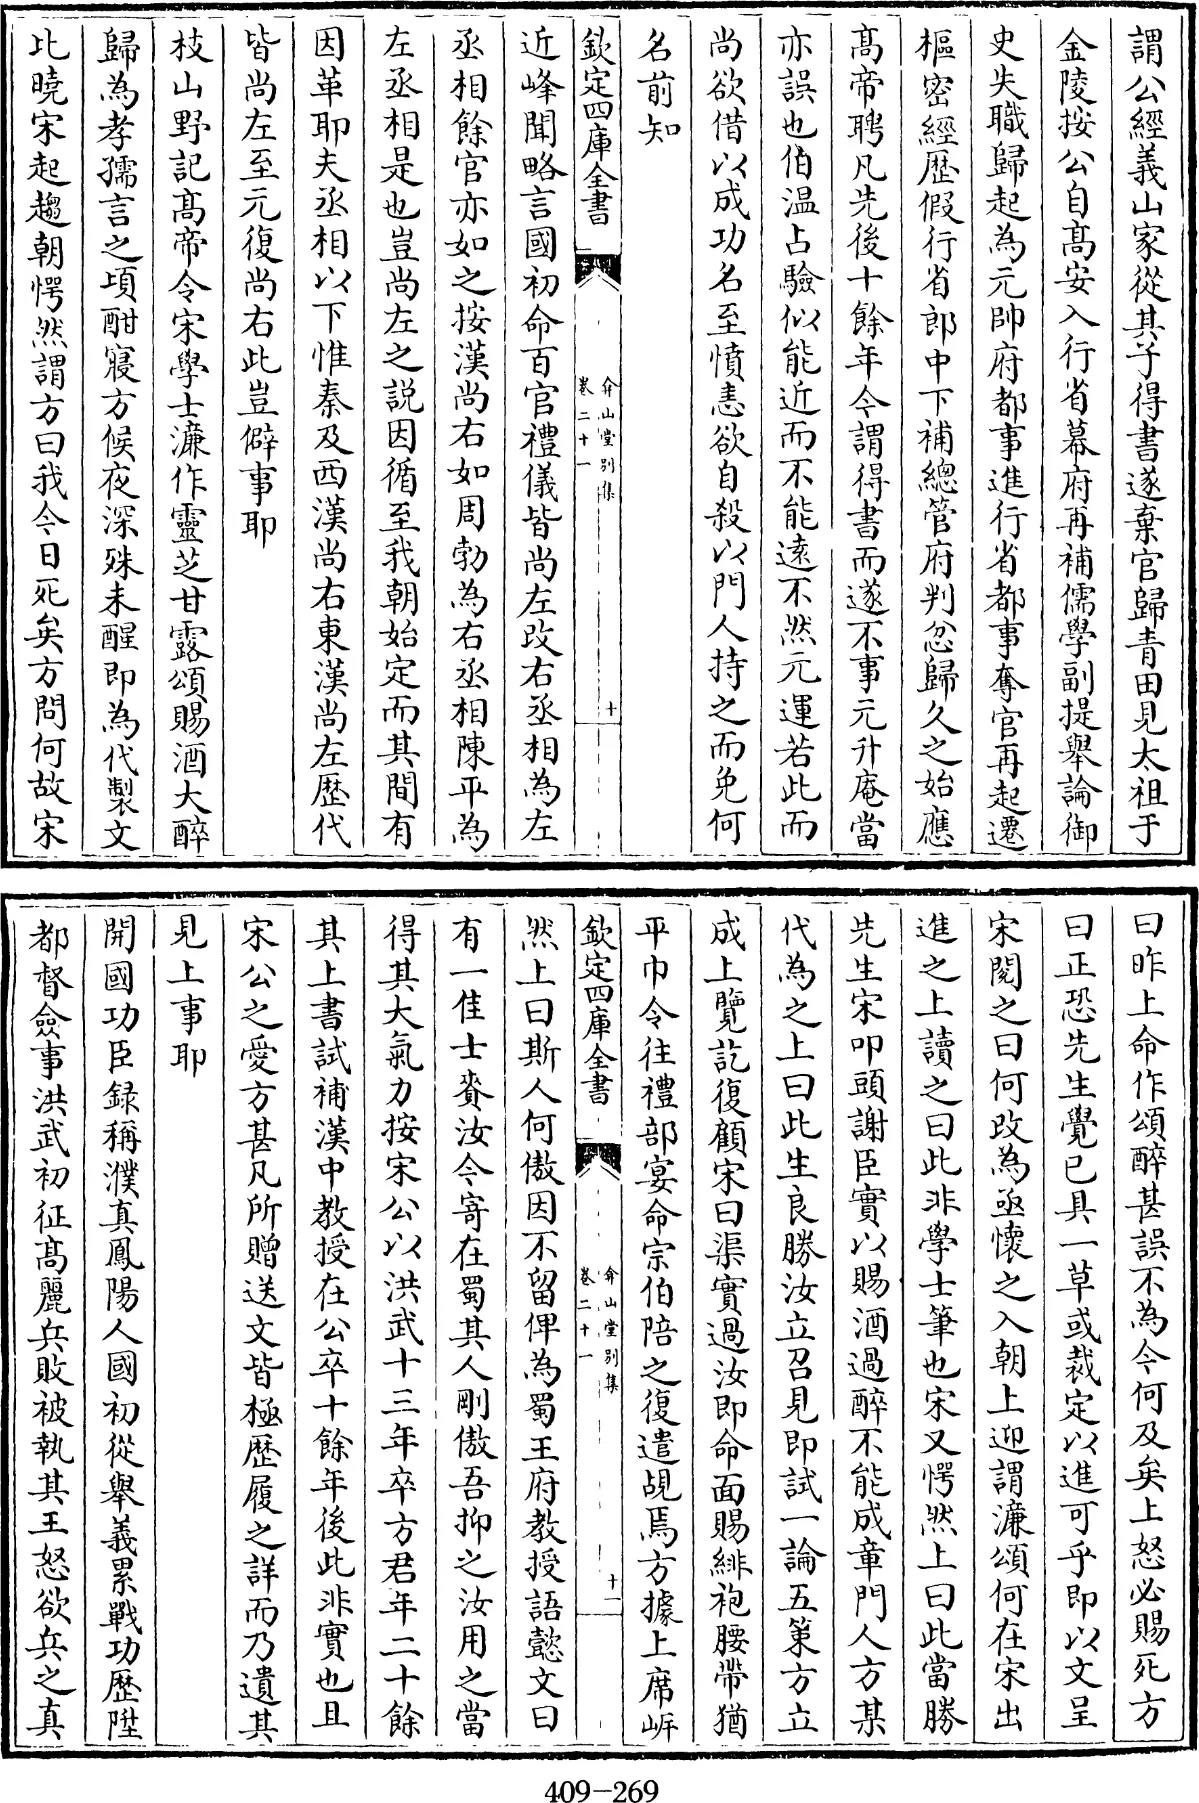 謂公經義山家從其子得書遂棄官歸青田見太祖于
金陵按公自髙安入行省幕府再補儒學副提舉論御
史失職歸起為元帥府都事進行省都事奪官再起遷
樞密經歴假行省郎中下補總管府判忿歸久之始應
髙帝聘凡先後十餘年今謂得書而遂不事元升庵當
亦誤也伯温占驗似能近而不能逺不然元運若此而
尚欲借以成功名至憤恚欲自殺以門人持之而免何
名前知
欽定四庫全書
弇山堂别集
卷二十一
十
近峰聞略言國初命百官禮儀皆尚左改右丞相為左
丞相餘官亦如之按漢尚右如周勃為右丞相陳平為
左丞相是也豈尚左之説因循至我朝始定而其間有
因革耶夫丞相以下惟秦及西漢尚右東漢尚左歴代
皆尚左至元復尚右此豈僻事耶
枝山野記髙帝令宋學士濂作靈芝甘露頌賜酒大醉
歸為孝孺言之頃酣寢方候夜深殊未醒即為代製文
比曉宋起趨朝愕然謂方曰我今日死矣方問何故宋
曰昨上命作頌醉甚誤不為今何及矣上怒必賜死方
曰正恐先生覺已具一草或裁定以進可乎即以文呈
宋閲之曰何改為亟懷之入朝上迎謂濂頌何在宋出
進之上讀之曰此非學士筆也宋又愕然上曰此當勝
先生宋叩頭謝臣實以賜酒過醉不能成章門人方某
代為之上曰此生良勝汝立召見即試一論五策方立
成上覽訖復顧宋曰渠實過汝即命面賜緋袍腰帶猶
平巾令往禮部宴命宗伯陪之復遣覘焉方據上席岸
欽定四庫全書
弇山堂别集
卷二十一
十一
然上曰斯人何傲因不留俾為蜀王府教授語懿文曰
有一佳士賚汝今寄在蜀其人剛傲吾抑之汝用之當
得其大氣力按宋公以洪武十三年卒方君年二十餘
其上書試補漢中教授在公卒十餘年後此非實也且
宋公之愛方甚凡所贈送文皆極歴履之詳而乃遺其
見上事耶
開國功臣録稱濮真鳳陽人國初從舉義累戰功歴陞
都督僉事洪武初征髙麗兵敗被執其王怒欲兵之真
409-269